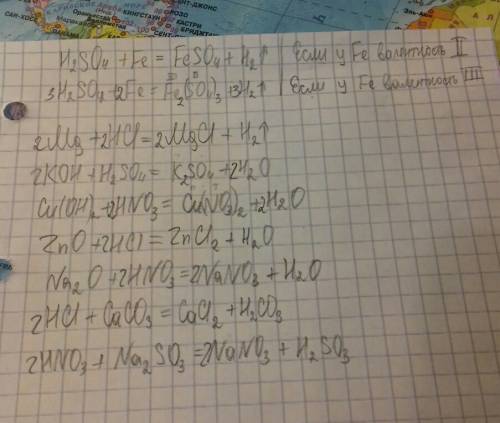 H₂SO₄ + Fe = FeSO₄ + H₂↑ | Если у Fe валитность II
3H₂SO₄ + 2Fe = Fe₂(SO₄)₃ + 3H₂↑ | Если у Fe валитность III
2Mg + 2HCl = 2MgCl + H₂↑
2KOH + H₂SO₄ = K₂SO₄ + 2H₂O
Cu(OH)₂ + 2HNO₃ = Cu(NO₃)₂ + 2H₂O
ZnO + 2HCl = ZnCl₂ + H₂O
Na₂O + 2HNO₃ = 2NaNO₃ + H₂O
2HCl + CaCO₃ = CaCl₂ + H₂CO₃
2HNO₃ + Na₂SO₃ = 2NaNO₃ + H₂SO₃